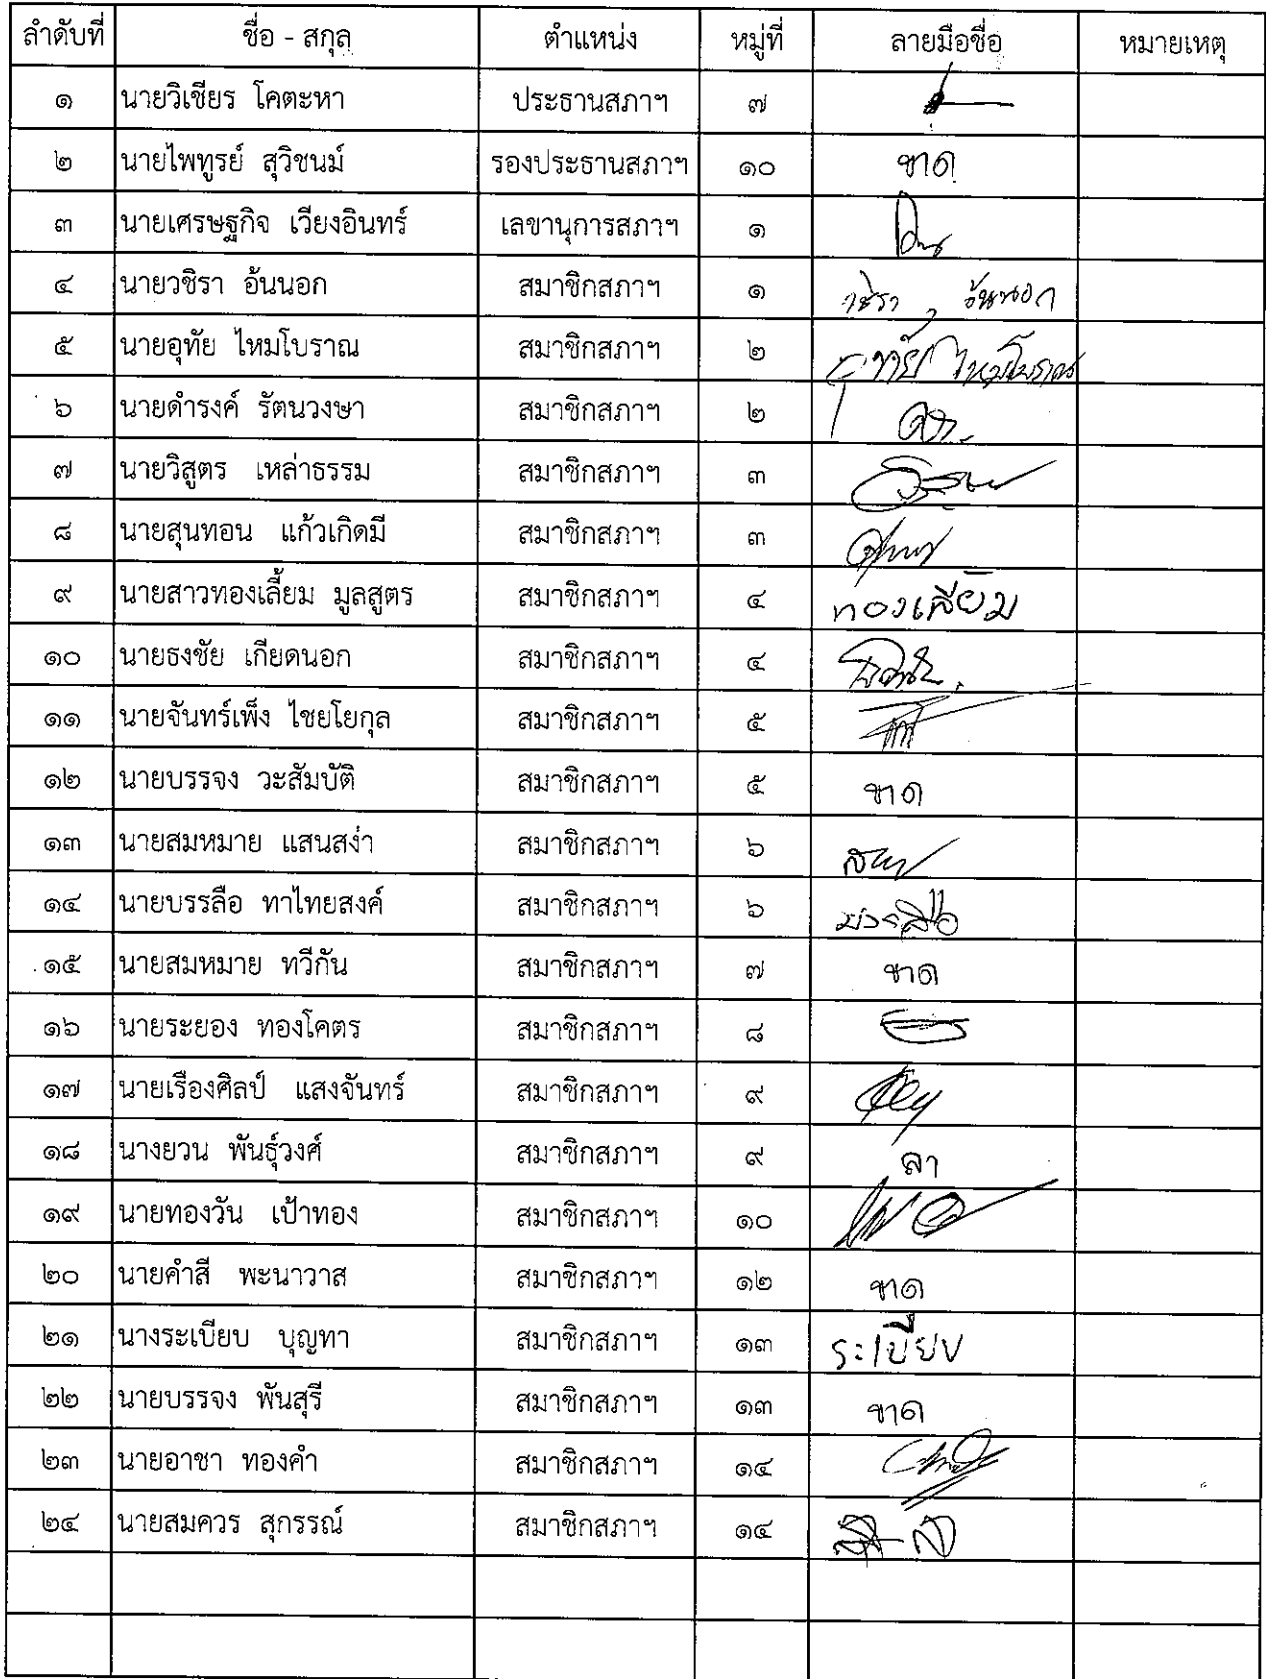 ลำดับที่ ชื่อ - สกุล ตำแหน่ง หมู่ที่ ลายมือชื่อ หมายเหตุ
๑ นายวิเชียร โคตะหา ประธานสภาฯ ๗
๒ นายไพฑูรย์ สุวิชนม์ รองประธานสภาฯ ๑๐ ขาด
๓ นายเศรษฐกิจ เวียงอินทร์ เลขานุการสภาฯ ๑
๔ นายวชิรา อ้นนอก สมาชิกสภาฯ ๑ วชิรา อ้นนอก
๕ นายอุทัย ไหมโบราณ สมาชิกสภาฯ ๒ อุทัย ไหมโบราณ
๖ นายดำรงค์ รัตนวงษา สมาชิกสภาฯ ๒
๗ นายวิสูตร เหล่าธรรม สมาชิกสภาฯ ๓
๘ นายสุนทอน แก้วเกิดมี สมาชิกสภาฯ ๓
๙ นายสาวทองเลี้ยม มูลสูตร สมาชิกสภาฯ ๔ ทองเลี้ยม
๑๐ นายธงชัย เกียดนอก สมาชิกสภาฯ ๔
๑๑ นายจันทร์เพ็ง ไชยโยกุล สมาชิกสภาฯ ๕
๑๒ นายบรรจง วะสัมบัติ สมาชิกสภาฯ ๕ ขาด
๑๓ นายสมหมาย แสนสง่า สมาชิกสภาฯ ๖
๑๔ นายบรรลือ ทาไทยสงค์ สมาชิกสภาฯ ๖ บรรลือ
๑๕ นายสมหมาย ทวีกัน สมาชิกสภาฯ ๗ ขาด
๑๖ นายระยอง ทองโคตร สมาชิกสภาฯ ๘
๑๗ นายเรืองศิลป์ แสงจันทร์ สมาชิกสภาฯ ๙
๑๘ นางยวน พันธุ์วงศ์ สมาชิกสภาฯ ๙ ลา
๑๙ นายทองวัน เป้าทอง สมาชิกสภาฯ ๑๐
๒๐ นายคำสี พะนาวาส สมาชิกสภาฯ ๑๒ ขาด
๒๑ นางระเบียบ บุญทา สมาชิกสภาฯ ๑๓ ระเบียบ
๒๒ นายบรรจง พันสุรี สมาชิกสภาฯ ๑๓ ขาด
๒๓ นายอาชา ทองคำ สมาชิกสภาฯ ๑๔
๒๔ นายสมควร สุกรรณ์ สมาชิกสภาฯ ๑๔